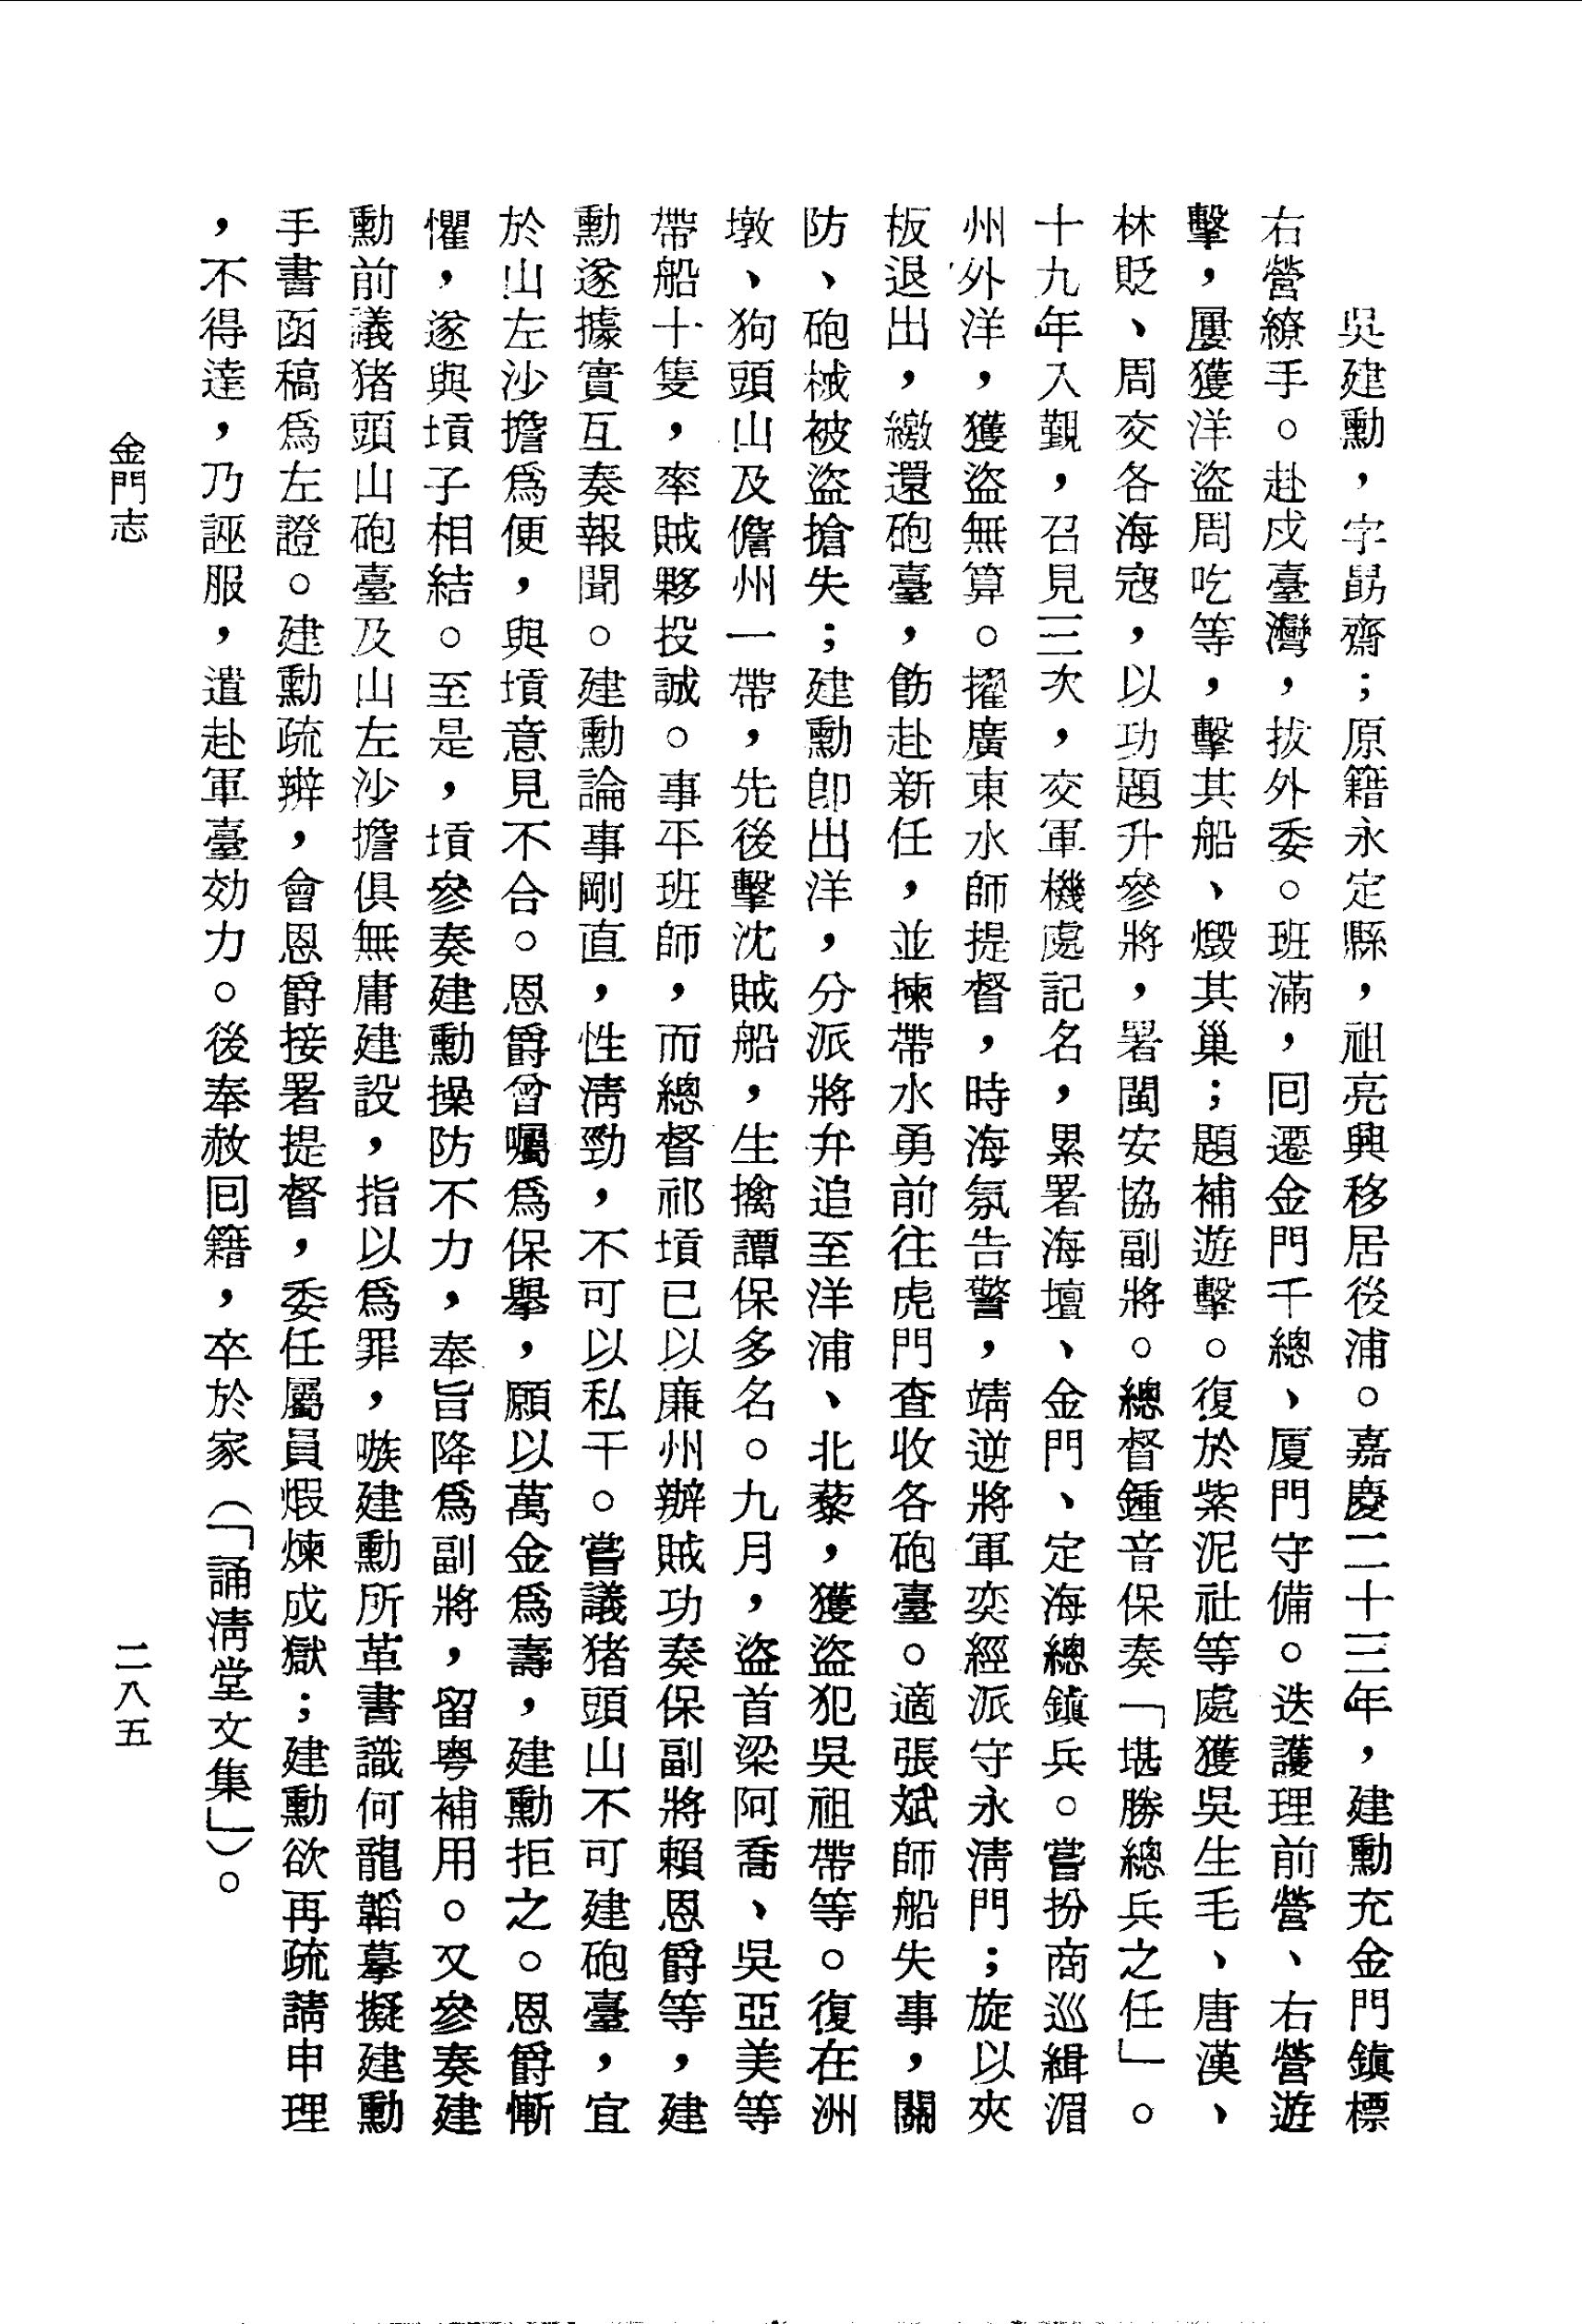 吳建勳，字勗齋；原籍永定縣，祖亮興移居後浦。嘉慶二十三年，建勳充金門鎮標
右營繚手。赴戍臺灣，拔外委。班滿，回遷金門千總、厦門守備。迭護理前營、右營遊
擊，屢獲洋盜周吃等，擊其船、燬其巢；題補遊擊。復於紫泥社等處獲吳生毛、唐漢、
林貶、周交各海寇，以功題升參將，署閩安協副將。總督鍾音保奏「堪勝總兵之任」。
十九年入覲，召見三次，交軍機處記名，累署海壇、金門、定海總鎮兵。嘗扮商巡緝湄
州外洋，獲盜無算。擢廣東水師提督，時海氛告警，靖逆將軍奕經派守永淸門；旋以夾
板退出，繳還砲臺，飭赴新任，並揀帶水勇前往虎門查收各砲臺。適張斌師船失事，關
防、砲械被盜搶失；建勳卽出洋，分派將弁追至洋浦、北藜，獲盜犯吳祖帶等。復在洲
墩、狗頭山及儋州一帶，先後擊沈賊船，生擒譚保多名。九月，盜首梁阿喬、吳亞美等
帶船十隻，率賊夥投誠。事平班師，而總督祁墳已以廉州辦賊功奏保副將賴恩爵等，建
勳遂據實互奏報聞。建勳論事剛直，性淸勁，不可以私干。嘗議猪頭山不可建砲臺，宜
於山左沙擔爲便，與墳意見不合。恩爵曾囑爲保擧，願以萬金爲壽，建勳拒之。恩爵慚
懼，遂與墳子相結。至是，墳參奏建勳操防不力，奉旨降爲副將，留粵補用。又參奏建
勳前議猪頭山砲臺及山左沙擔俱無庸建設，指以爲罪，嗾建勳所革書識何龍韜摹擬建勳
手書函稿爲左證。建勳疏辨，會恩爵接署提督，委任屬員煆煉成獄；建勳欲再疏請申理
，不得達，乃誣服，遣赴軍臺効力。後奉赦回籍，卒於家（「誦淸堂文集」）。
金門志
二八五